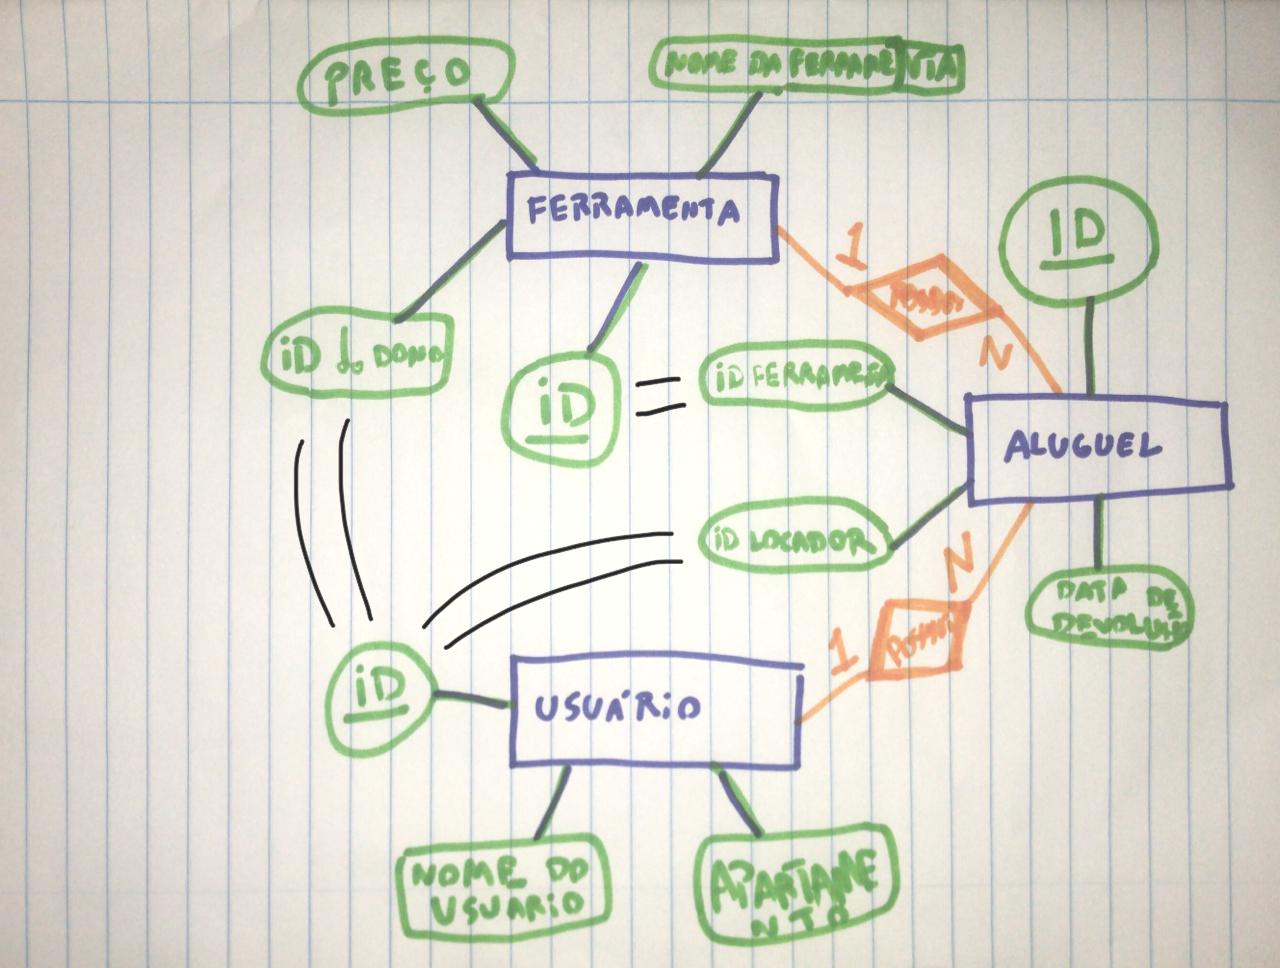 PREÇO
NOME DA FERRAMENTA
FERRAMENTA
ID
1
POSSUI
N
iD do DONO
iD
iD FERRAMENTA
ALUGUEL
iD LOCADOR
N
DATA DE
DEVOLUÇÃO
1
POSSUI
iD
USUÁRiO
NOME DO
USUARIO
APARTAME
NTO